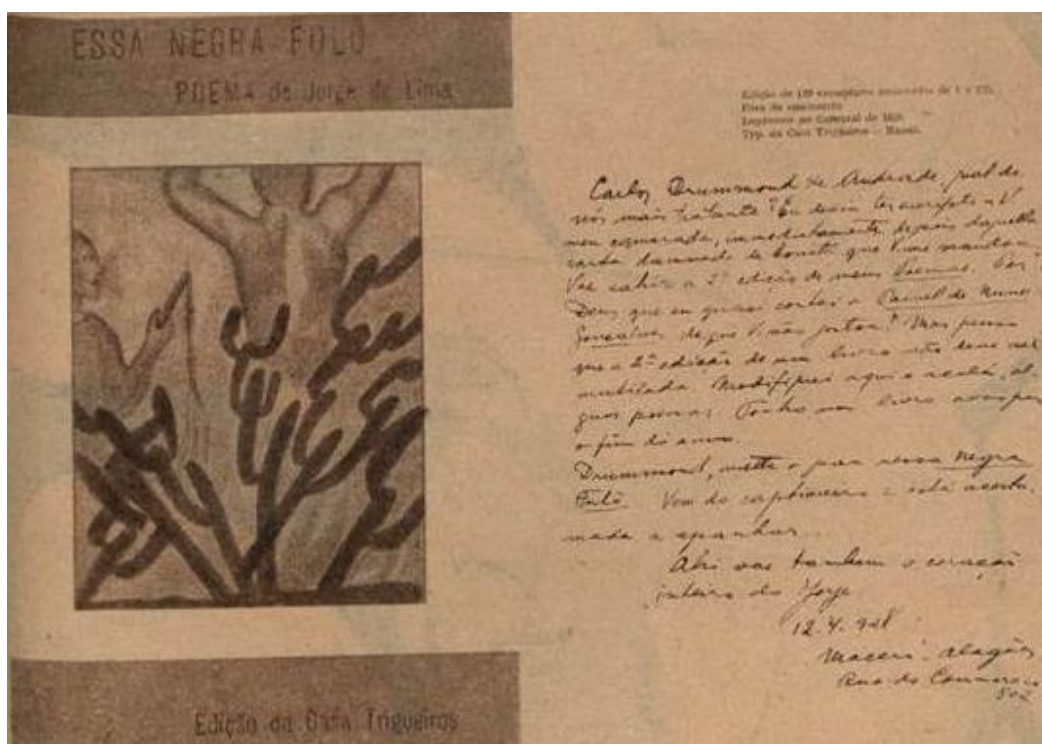 ESSA NEGRA FULÔ
POEMA de Jorge de Lima
Edição da Casa Trigueiros
Edição de exemplares numerados de 1 a
Fóra do
Typ. da Casa Trigueiros — Maceió.
Carlos Drummond de Andrade, qual de
nós mais tratante? Eu devia ter escripto a V
meu camarada, immediatamente depois daquella
carta damnada de bonita que V me mandou.
Vae sahir a 2ª edição de meus Poemas. Por
Deus que eu quiz cortar o Painel de Nuno
Gonçalves de que V não gostou! Mas penso
que a 2ª edição de um livro não deve ser
mutilada. Modifiquei aqui e acolá, al-
guns poemas. Tenho um livro novo para
o fim do anno.
Drummond, metta o pau nessa Negra
Fulô. Vem do captiveiro e está acostu-
mada a apanhar...
Ahi vae tambem o coração
inteiro do Jorge
12.4.928
Maceió - Alagôas
Rua do Commercio
502